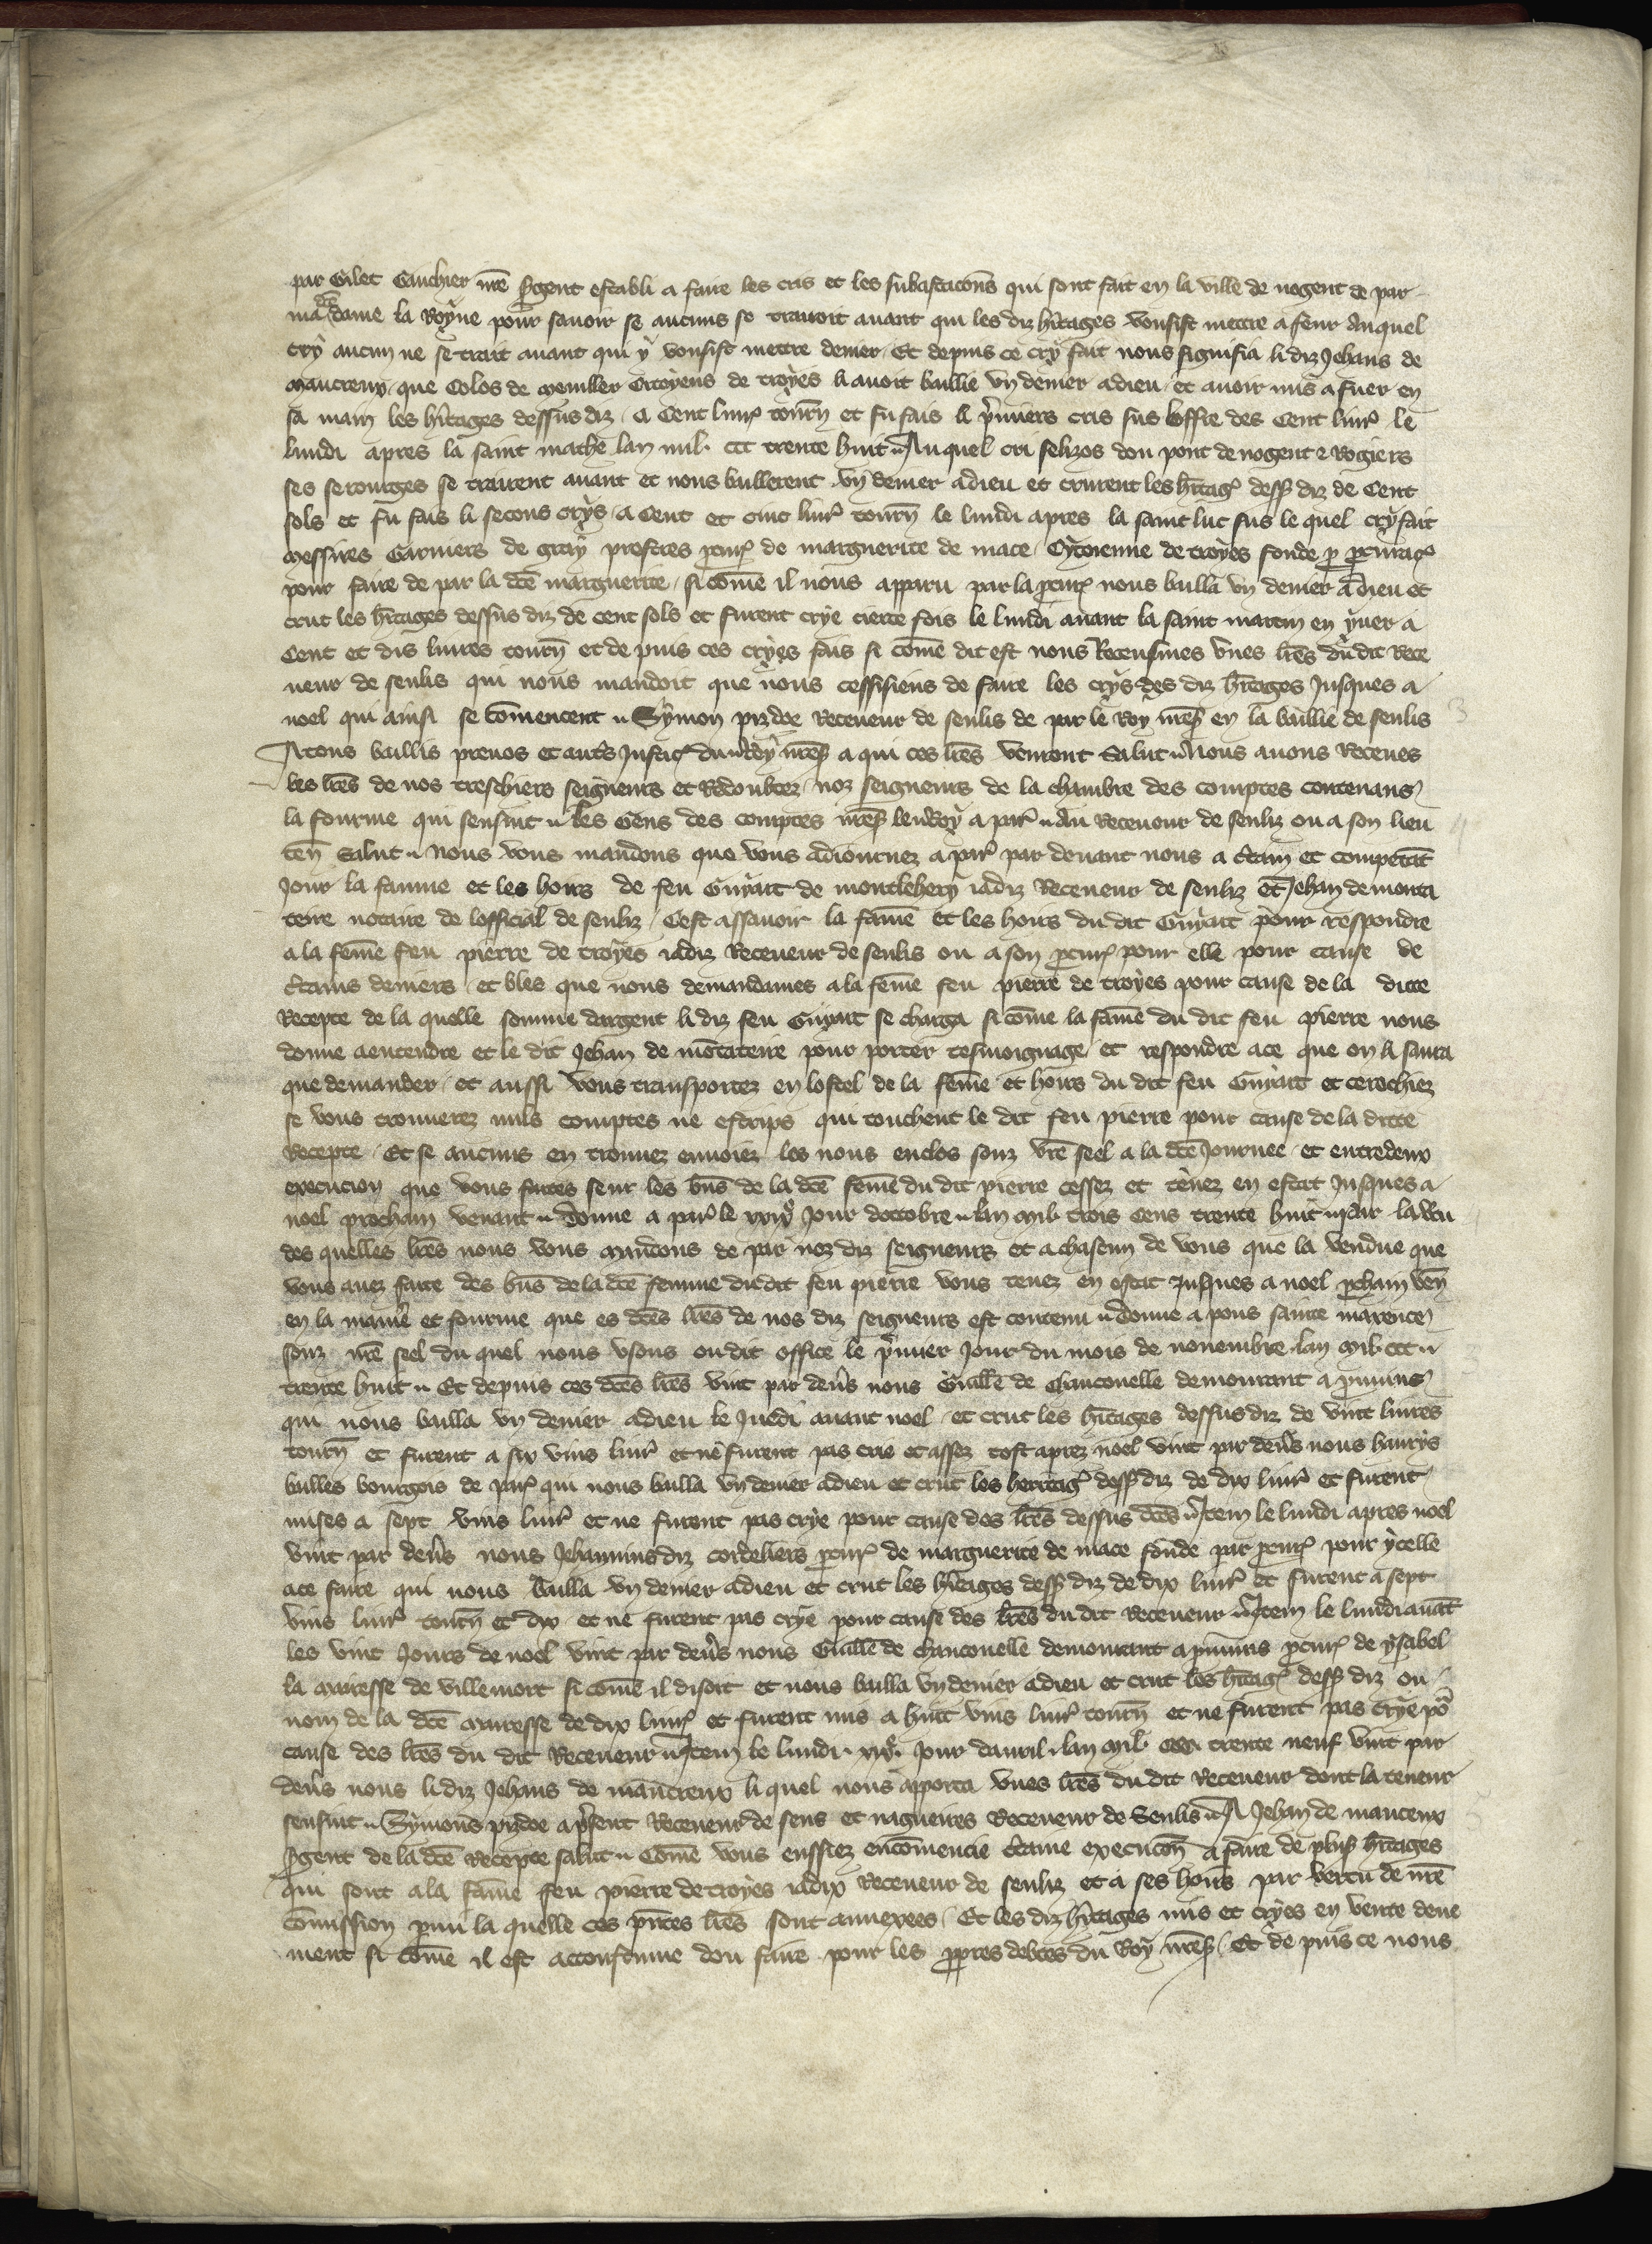 par Gilet Gauchier nr̄e s̄gent establi a faire les cris et les subastacions qui sont fait en la ville de nogent de par
ma dc̄e dame la Royne pour sauoir se aucuns se trairoit auant qui les diz hītages vousist mettre a feur Auquel
cry aucun ne se trait auant qui y vousist mettre denier Et depuis ce cry fait nous signifia li diz Jehans de
que Colos de Citoyens de troyes li auoit baillie vn denier adieu et auoir mis a fuer en
sa main les hītages dessus diz A Cent liur̄ tourn̄ et fu fais li p̄miers cris sus loffre des Cent liur̄ le
lundi apres la saint mathe lan mil ccc trente huit Auquel cri felizos dou pont de nogent ⁊ Rogiers
ses serourges se trairent auant et nous baillerent vn denier adieu et crurent les hītaḡ dess̄ diz de Cent
sols et fu fais li secons crys a Cent et cinc liur̄ tourn̄ le lundi apres la saint luc sus le quel cry fait
messires Garniers de gray prestres p̄cur̄ de marguerite de mace Cytoienne de troyes fonde p̄ p̄curac̄
pour faire de par la dc̄e marguerite si com̄e il nous apparu par la p̄cur̄ nous bailla vn denier adieu et
crut les hītages dessus diz de cent sols et furent crye tierce fois le lundi auant la saint martin en yuer a
Cent et dis liures tourn̄ et de puis ces cryes fais si com̄e dit est nous Receusmes vnes lr̄es du dit Rece
ueur de senlis qui nous mandoit que nous cessisiens de faire les crys des diz hītages Jusques a
noel qui ainsi se com̄encent Symon pizdoe Receueur de senlis de par le Roy nr̄es̄ en la baillie de senlis
A tous baillis preuos et aut̄s Justic̄ du Roy nr̄es̄ a qui ces lr̄es venront Salut Nous auons Receues
les lr̄es de nos treschiers seigneurs et Redoubtez noz seigneurs de la chambre des comptes contenans
la fourme qui sensuit les Gens des comptes nr̄es̄ leu Roy a par̄ Au Receueur de senliz ou a son lieu
ten̄ Salut Nous vous mandons que vous adiournez a par̄ par deuant nous a c̄tain et competāt
Jour la famme et les hoirs de feu Guyart de montlehery iadiz Receueur de senliz et Jehan de monta
teire notaire de lofficial de senliz Cest assauoir la fam̄e et les hoirs du dit Guyart pour respondre
a la fem̄e feu pierre de troyes iadiz Receueur de senlis ou a son p̄cur̄ pour elle pour cause de
c̄tains deniers et bles que nous demandames a la fem̄e feu pierre de troyes pour cause de la dicte
Recepte de la quelle somme dargent li diz feu Guyart se charga si com̄e la fam̄e du dit feu pierre nous
donne a entendre et le dit Jehan de mōtateire pour porter tesmoignage et respondre ace que on li saura
que demander et aussi vous transportez en lostel de la fem̄e et hoirs du dit feu Guyart et cerchiez
se vous trouuerez nuls comptes ne escrips qui touchent le dit feu pierre pour cause de la dicte
Recepte Et se aucuns en trouuez enuoiez les nous enclos souz vr̄e seel a la dc̄e Journee et entredeux
execucion que vous faites seur les bn̄s de la dc̄e fem̄e du dit pierre cessez et tenez en estat Jusques a
noel prochain venant Donne a par̄ le xxix⁰ Jour doctobre lan mil trois Cens trente huit par la v̄tu
des quelles lr̄es nous vous mandons de par noz diz seigneurs et a chascun de vous que la vendue que
vous auez faite des bn̄s de la dc̄e femme du dit feu pierre vous tenez en estat Jusques a noel p̄chain ven̄
en la manīe et fourme que es dc̄es lr̄es de nos diz seigneurs est contenu Donne a pons sainte maxence
souz nr̄e seel du quel nous vsons ou dit office le p̄mier Jour du mois de nouembre lan mil ccc
trente huit Et depuis ces dc̄es lr̄es vint par deūs nous Guillē de Chanconelle demourant a prouuins
qui nous bailla vn denier adieu le Juedi auant noel et crut les hītages dessus diz de vint liures
tourn̄ et furent a six vins liur̄ et ne furent pas crie et assez tost aprez noel vint par deūs nous haurys
bulles bourgois de par̄ qui nous bailla vn denier adieu et crut les heritaḡ dess̄ diz de dix liur̄ et furent
mises a sept vins liur̄ et ne furent pas crye pour cause des lr̄es dessus dc̄es Item le lundi apres noel
vint par deūs nous Jehannins diz cordeliers p̄cur̄ de marguerite de mace fonde par p̄cur̄ pour ycelle
ace faire qui nous bailla vn denier adieu et crut les hītages dess̄ diz de dix liur̄ et furent a sept
vins liur̄ tourn̄ et dix et ne furent pas crye pour cause des lr̄es du dit Receueur Item le lundi auāt
les vint Jours de noel vint par deūs nous Guillē de Chanconelle demourant a prouuins p̄cur̄ de ysabel
la mairesse de villemort si com̄e il disoit et nous bailla vn denier adieu et crut les hītaḡ dess̄ diz ou
nom de la dc̄e mairesse de dix liur̄ et furent mis a huit vins liur̄ tourn̄ et ne furent pas crye pō
cause des lr̄es du dit Receueur Item le lundi xix⁰ Jour dauril lan mil ccc trente neuf vint par
deūs nous li diz Jehans de mautreux li quel nous aporta vnes lr̄es du dit Receueur dont la teneur
sensuit Symons pizdoe a p̄sent Receueur de sens et nagueires Receueur de Senlis A Jehan de mautreux
s̄gent de la dc̄e Recepte salut Com̄e vous eussiez encom̄encie c̄taine execucōn a faire de plus̄ hītages
qui sont a la fam̄e feu pierre de troyes iadix Receueur de senliz et a ses hoirs par vertu de nr̄e
com̄ission p̄mi la quelle ces p̄ntes lr̄es sont annexees Et les diz hītages mis et cryes en vente deue
ment si com̄e il est accoustume dou faire pour les p̄pres debtes du Roy nr̄es̄ Et de puis ce nous